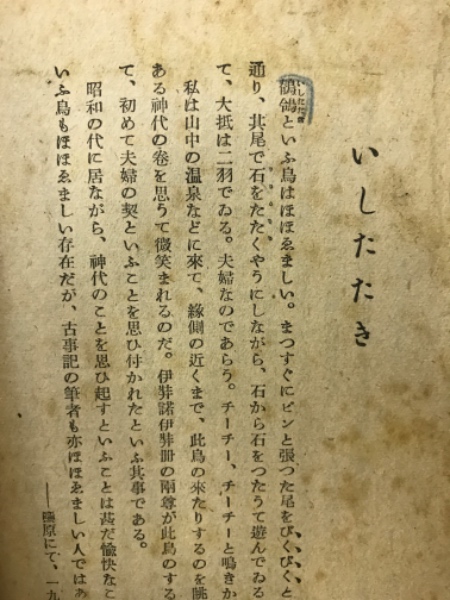 いしたたき
鶺鴒といふ鳥はほほゑましい。まつすぐにピンと張つた尾をぴくぴくと
いしたたき
通り、其尾で石をたたくやうにしながら、石から石をつたうて遊んでゐる
て、大抵は二羽でゐる。夫婦なのであらう。チーチー、チーチーと鳴きか
私は山中の温泉などに來て、緣側の近くまで、此鳥の來たりするのを眺
ある神代の卷を思うて微笑まれるのだ。伊弉諾伊弉冊の兩尊が此鳥のする
て、初めて夫婦の契といふことを思ひ付かれたといふ其事である。
昭和の代に居ながら、神代のことを思ひ起すといふことは甚だ愉快なこ
いふ鳥もほほゑましい存在だが、古事記の筆者も亦ほほゑましい人ではあ
原にて、一九